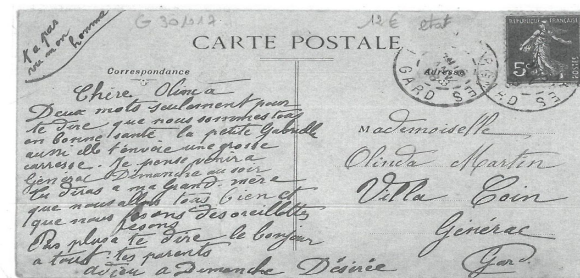 G 301017
12 € état
n'a pas
vu mon
homme
CARTE POSTALE
Correspondance
Adresse
RÉPUBLIQUE FRANÇAISE
5c
POSTES
GARD
GARD
Chère Olinda
Deux mots seulement pour
te dire que nous sommes tous
en bonne santé la petite Gabrielle
aussi elle t'envoie une grosse
carresse. Je pense venir a
Générac Dimanche au soir
tu diras a ma grand-mère
que nous allons tous bien et
que nous fesons des oreillettes
fesons
Pas plus a te dire le bonjour
a tous tes parents
adieu a Dimanche Désirée
Mademoiselle
Olinda Martin
Villa Coin
Générac
Gard.